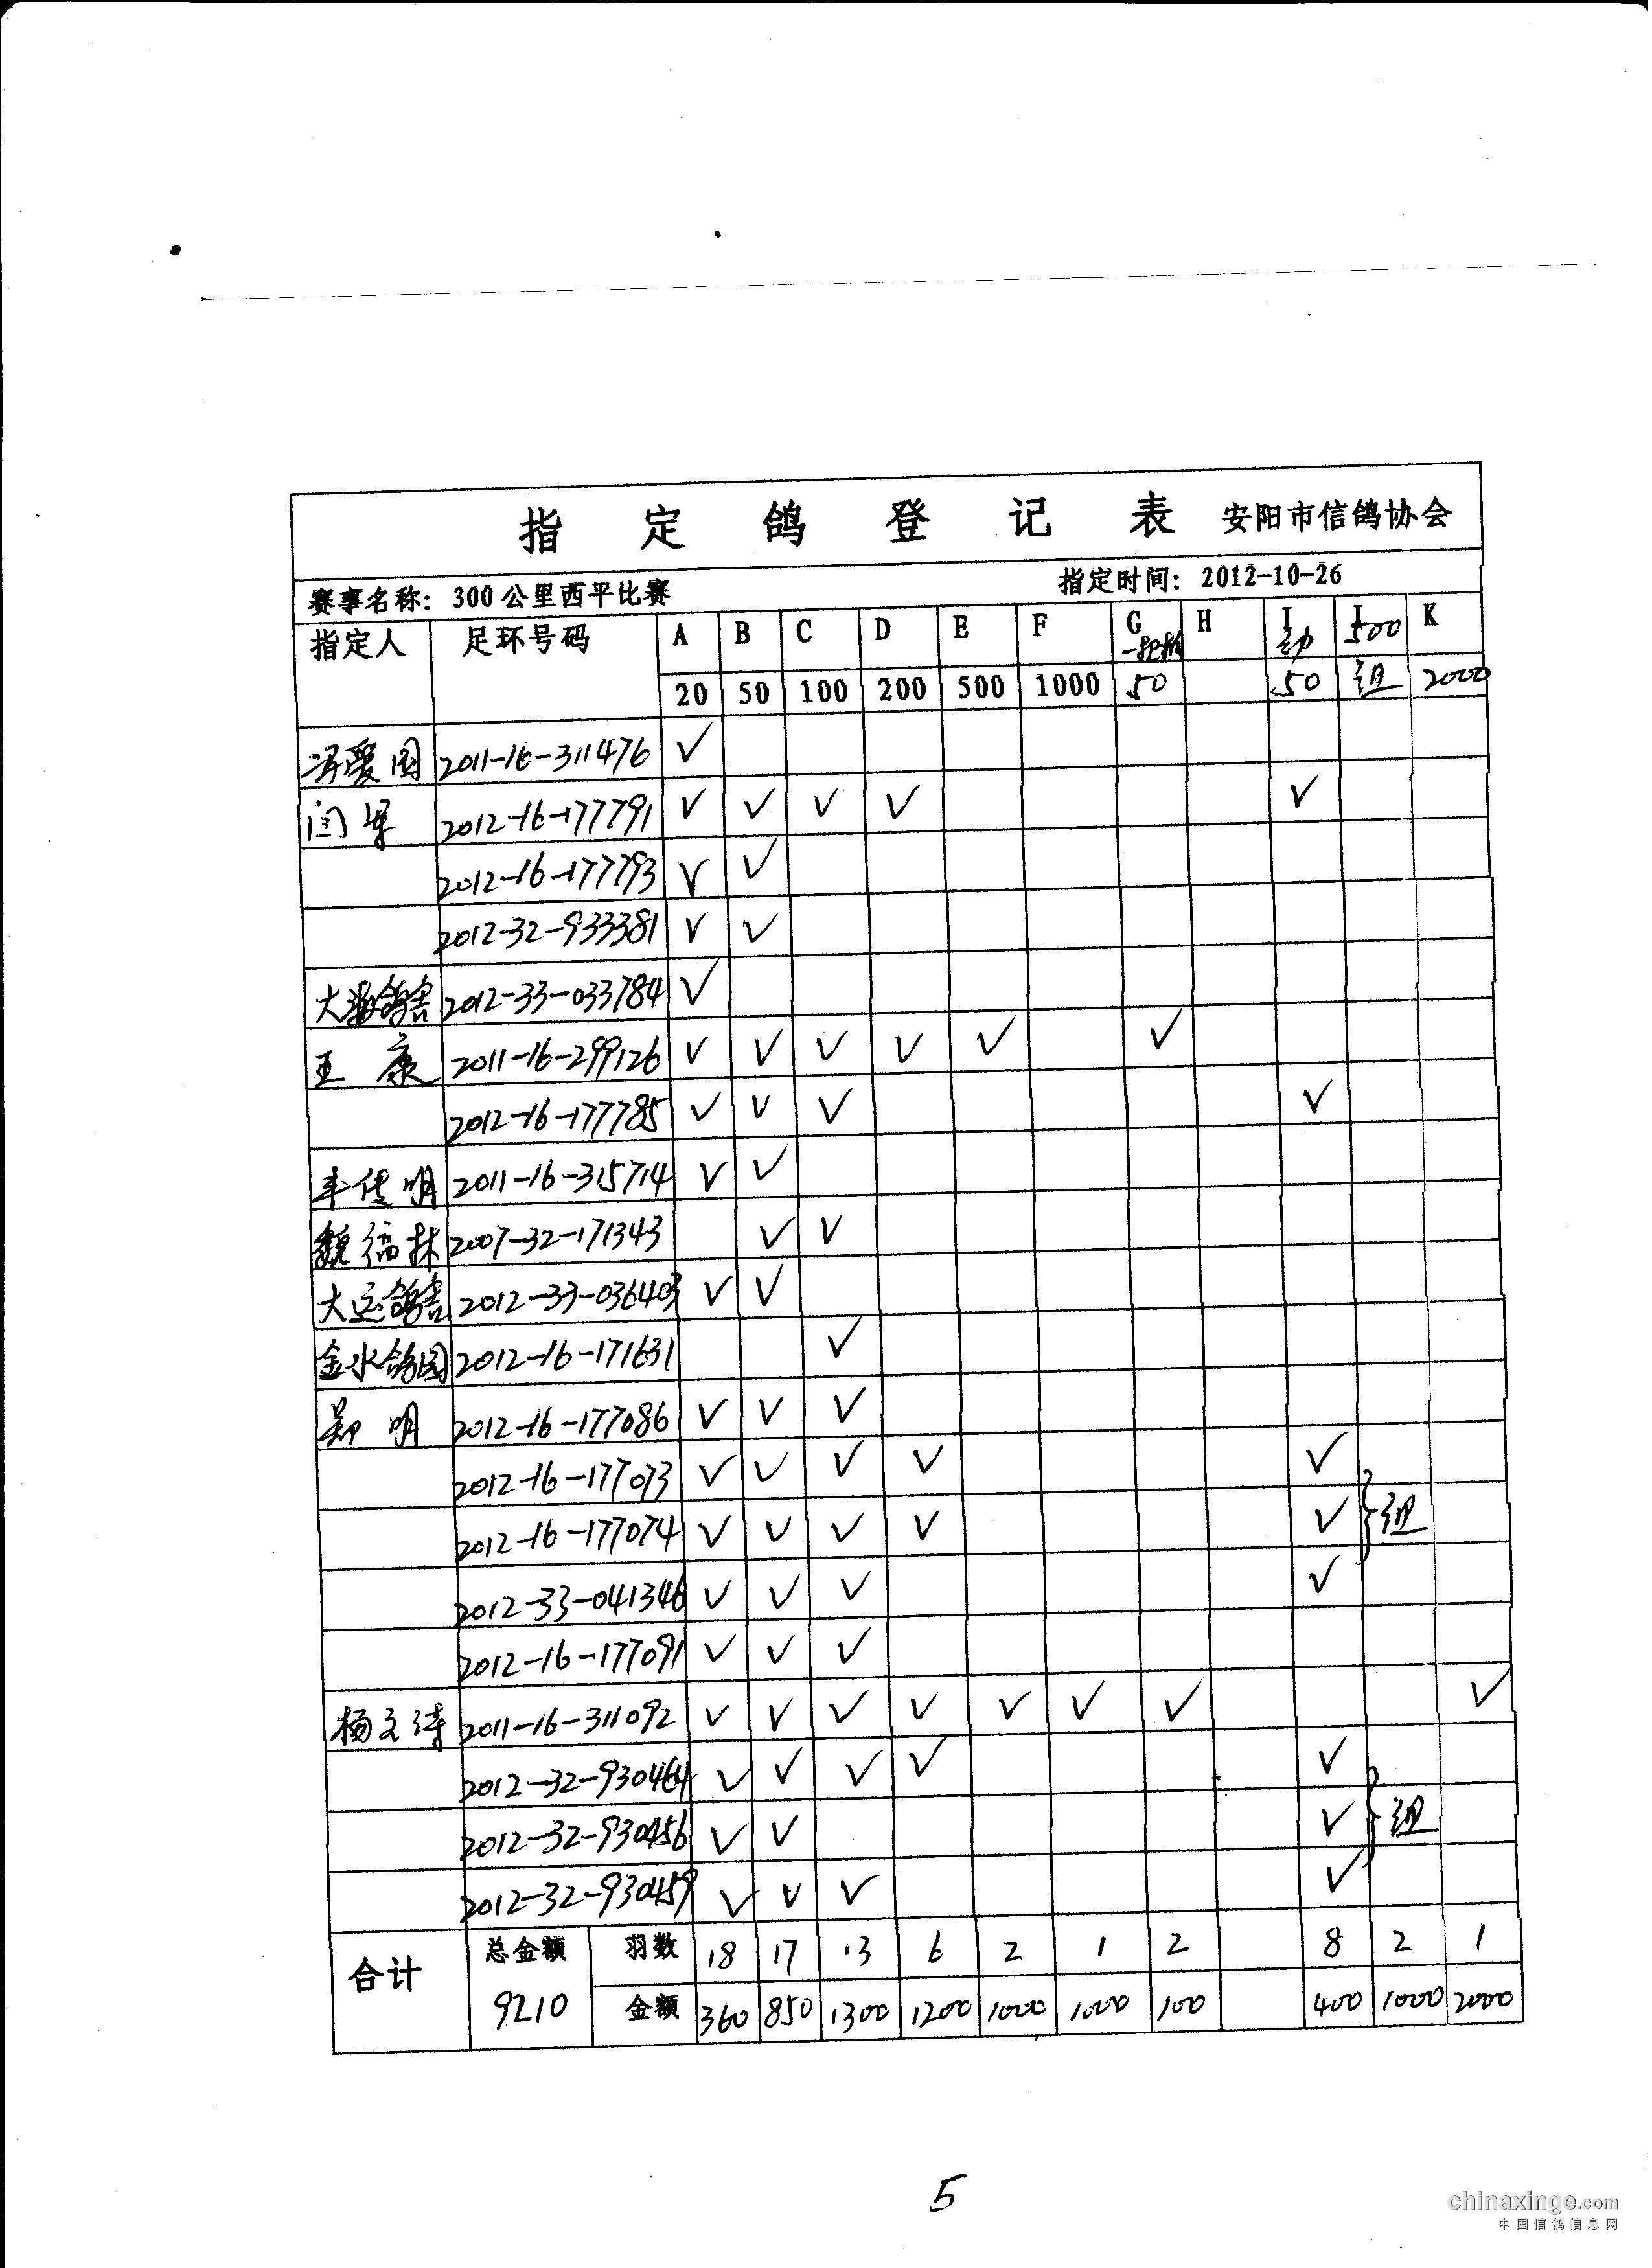 指定鸽登记表 安阳市信鸽协会
赛事名称：300公里西平比赛 指定时间：2012-10-26
指定人 足环号码 A B C D E F G H I 500 K
20 50 100 200 500 1000 50 50 组 2000
冯爱国 2011-16-311476 ✓
闫军 2012-16-177791 ✓ ✓ ✓ ✓ ✓
2012-16-177793 ✓ ✓
2012-32-933381 ✓ ✓
大海鸽舍 2012-33-033784 ✓
王康 2011-16-299126 ✓ ✓ ✓ ✓ ✓ ✓
2012-16-177785 ✓ ✓ ✓ ✓
丰传明 2011-16-315714 ✓ ✓
魏福林 2007-32-171343 ✓ ✓
大运鸽舍 2012-33-036403 ✓ ✓
金水鸽园 2012-16-171631 ✓
郑明 2012-16-177086 ✓ ✓ ✓
2012-16-177073 ✓ ✓ ✓ ✓ ✓
2012-16-177074 ✓ ✓ ✓ ✓ ✓ 组
2012-33-041346 ✓ ✓ ✓ ✓
2012-16-177091 ✓ ✓ ✓
杨文涛 2011-16-311092 ✓ ✓ ✓ ✓ ✓ ✓ ✓ ✓
2012-32-930464 ✓ ✓ ✓ ✓ ✓
2012-32-930456 ✓ ✓ ✓ 组
2012-32-930459 ✓ ✓ ✓ ✓
合计 总金额 羽数 18 17 13 6 2 1 2 8 2 1
9210 金额 360 850 1300 1200 1000 1000 100 400 1000 2000
5
chinaxinge.com
中国信鸽信息网